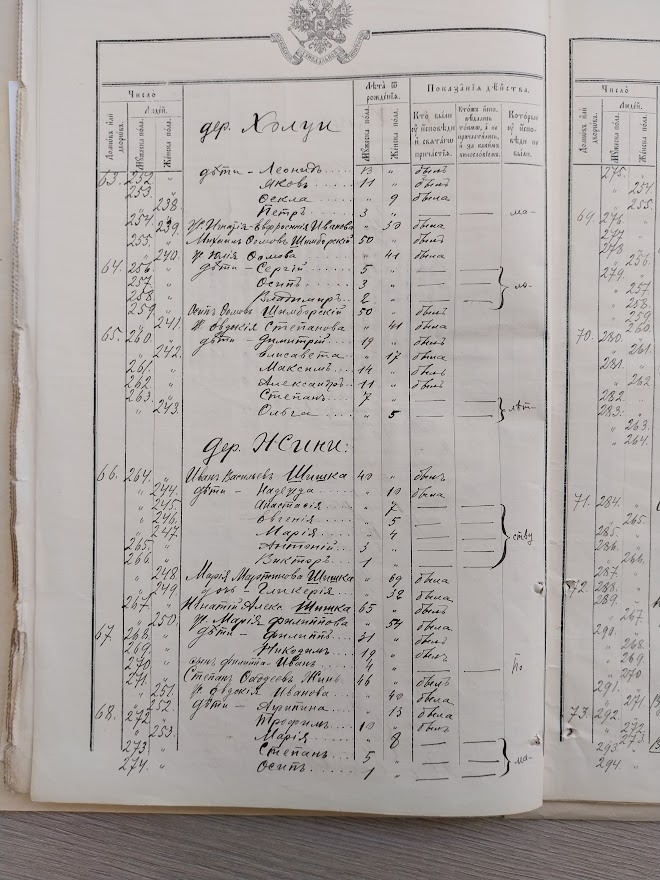 Число
Людей.
Домовъ или дворовъ.
Мужеска пола.
Женска пола.
дер. Холуи
Лѣта ѿ рожденія.
Мужеска пола.
Женска пола.
Показанія дѣйства.
Кто были у исповѣди и святаго причастія.
Которые не были.
63. 252. " дѣти - Леонидъ 13 " былъ
253. " Яковъ 11 " былъ
" 238. Ѳекла " 9 была
254. " Петръ 3 " — — ма-
" 239. Ж. Игнатія Евфросинія Иванова " 30 была
255. " Михаилъ Ѳомовъ Шимборскій 50 " былъ
" 240. Ж. Юлія Ѳомова " 41 была
64. 256. " дѣти - Сергій 5 " — —
257. " Осипъ 3 " — — ло-
258. " Владимиръ 2 " — —
259. " Осипъ Ѳомовъ Шимборскій 50 " былъ
" 241. Ж. Евдокія Степанова " 41 была
65. 260. " дѣти - Димитрій 19 " былъ
" 242. Елисавета " 17 была
261. " Максимъ 14 " былъ
262. " Александръ 11 " былъ
263. " Степанъ 7 " — —
" 243. Ольга " 5 — — лѣт-
дер. Жини:
66. 264. " Иванъ Васильевъ Шишка 40 " былъ
" 244. дѣти - Надежда " 10 была
" 245. Анастасія " 7 — —
" 246. Евгенія " 5 — —
" 247. Марія " 4 — — ству
265. " Антоній 3 " — —
266. " Викторъ 1 " — —
" 248. Марія Мартинова Шишка " 69 была
" 249. дочь - Гликерія " 32 была
267. " Игнатій Алекс. Шишка 65 " былъ
" 250. Ж. Марія Филиппова " 54 была
67. 268. " дѣти - Филиппъ 31 " былъ
269. " Никодимъ 19 " былъ
270. " сынъ Филиппа - Иванъ 4 " — — По
271. " Степанъ Жинь 46 " былъ
" 251. Ж. Евдокія Иванова " 40 была
" 252. дѣти - Агрипина " 13 была
68. 272. " Трофимъ 10 " былъ
" 253. Марія " 8 — —
273. " Степанъ 5 " — — ма-
274. " Осипъ 1 " — —
Число
Людей.
Домовъ или дворовъ.
Мужеска пола.
Женска пола.
275. "
" 254.
" 255.
69. 276. "
277. "
278. "
" 256.
279. "
" 257.
" 258.
" 259.
" 260.
70. 280. "
" 261.
281. "
" 262
282. "
283. "
" 263.
" 264.
71. 284. "
" 265.
285. "
286. "
" 266.
287. "
72. 288. "
289. "
" 267.
290. "
" 268.
" 269.
" 270
291. "
" 271.
73. 292. "
" 272.
" 273.
293 "
294 "